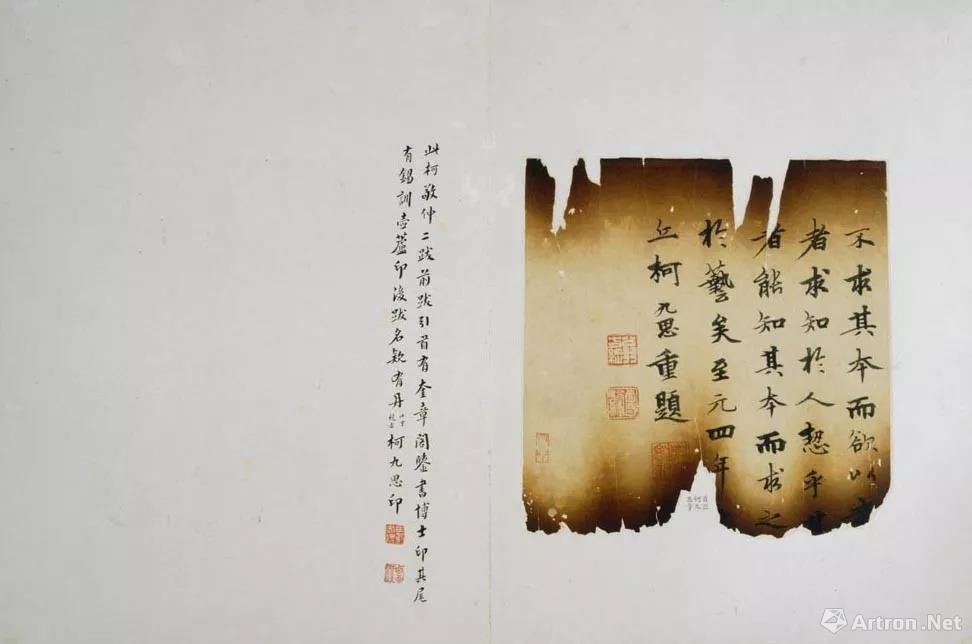 不求其本而欲以
者求知於人乎其
者能知其本而求之
於藝矣至元四年
丘柯九思重題
此柯敬仲二跋前跋引首有奎章閣鑒書博士印其尾
有錫訓壺蘆印後跋名欵有丹柯九思印
Artron.Net